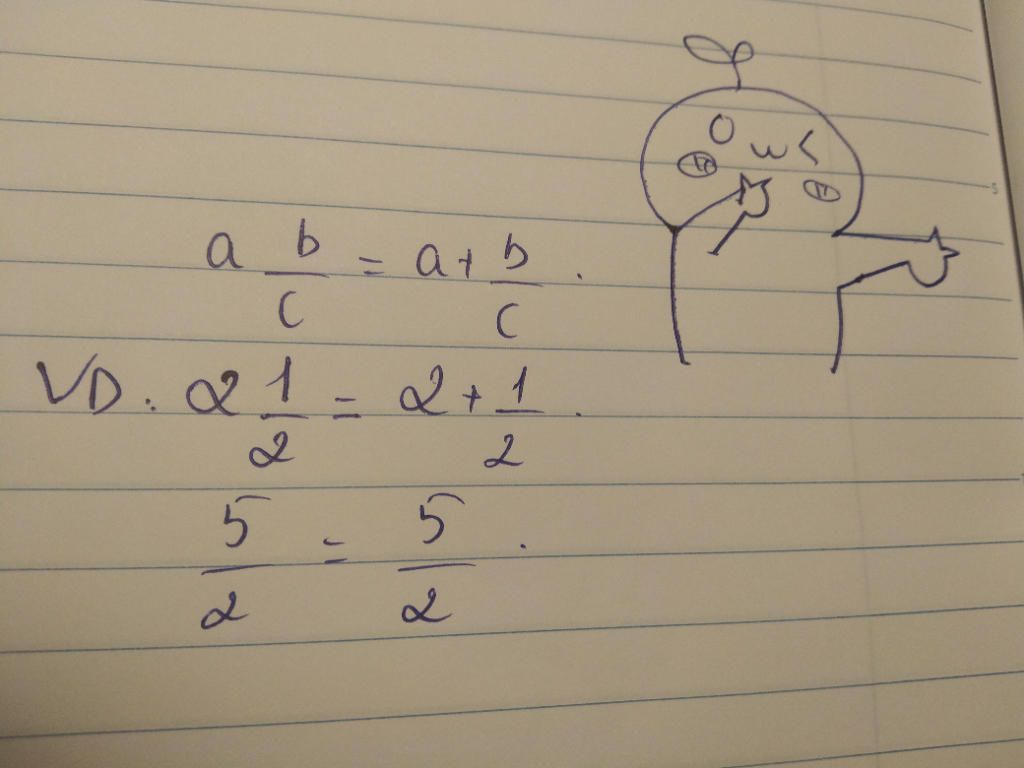 a b/c = a + b/c .
VD. 2 1/2 = 2 + 1/2 .
5/2 = 5/2 .